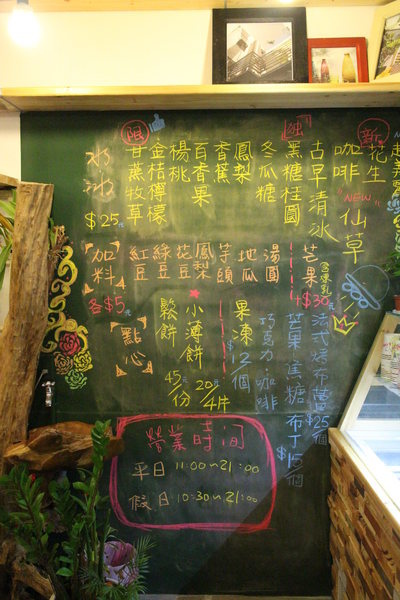 冰冰
$25元
限
甘蔗牧草
金桔檸檬
楊桃
百香果
香蕉
鳳梨
冬瓜糖
獨
黑糖桂圓
古早清冰
咖啡
新
花生
NEW
仙草
加料
各$5元
紅豆
綠豆
花豆
鳳梨
芋頭
地瓜
湯圓
芒果
+$30元
點心
鬆餅
45元
份
小薄餅
20元
4片
果凍
$12個
巧克力·咖啡
法式烤布蕾
$25個
芒果·焦糖·布丁
$15個
營業時間
平日 11:00~21:00
假日 10:30~21:00